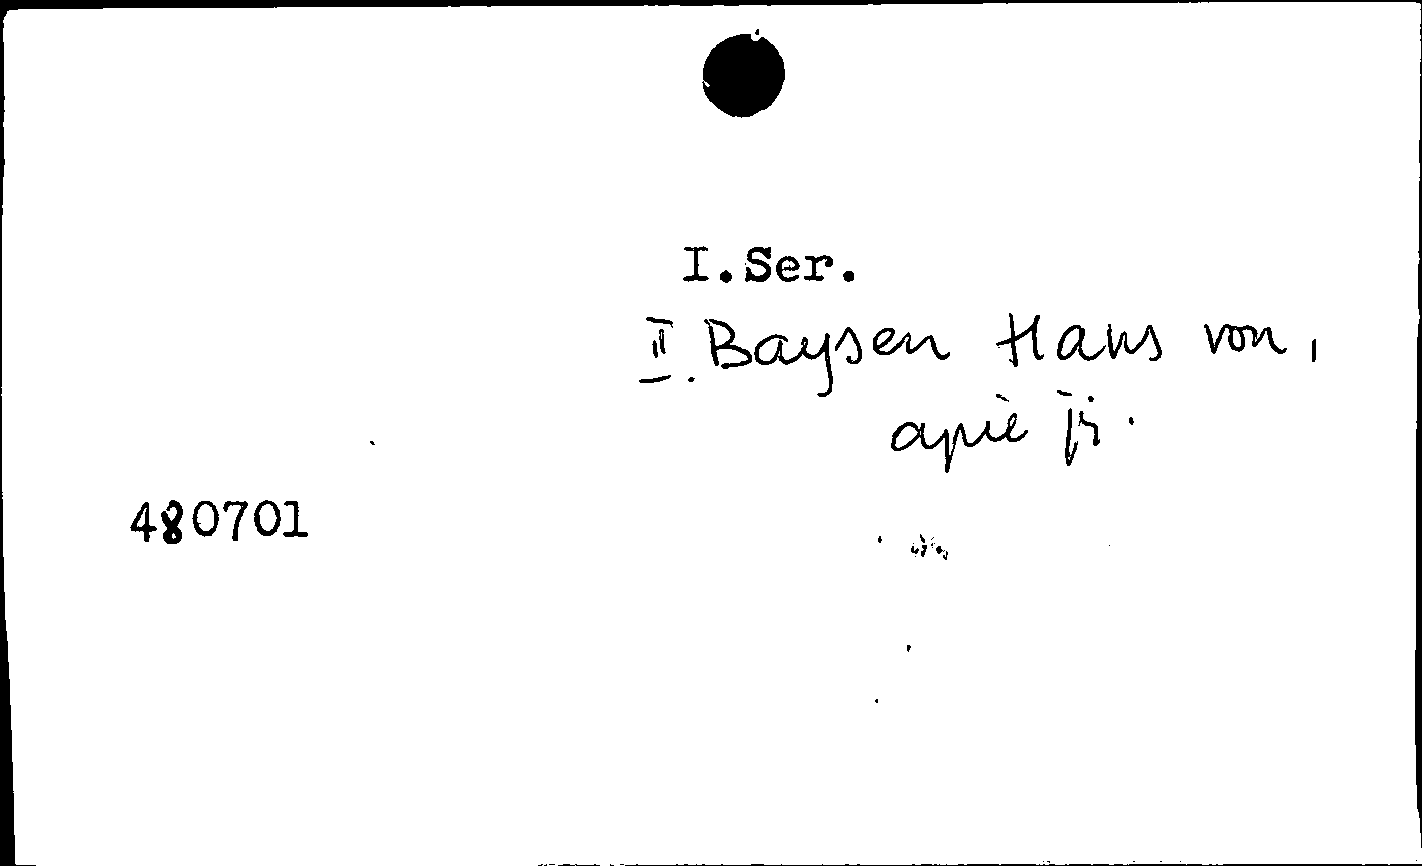 I.Ser.
II. Baysen Hans von,
apie jį.
480701